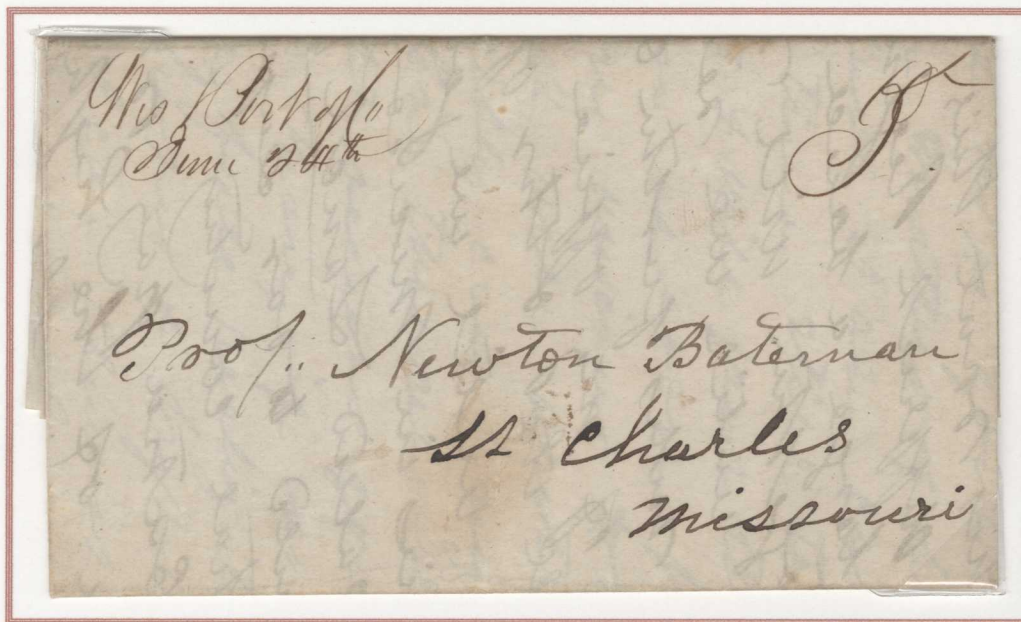 West Port Mo
June 24th
5
Prof. Newton Bateman
St Charles
Missouri